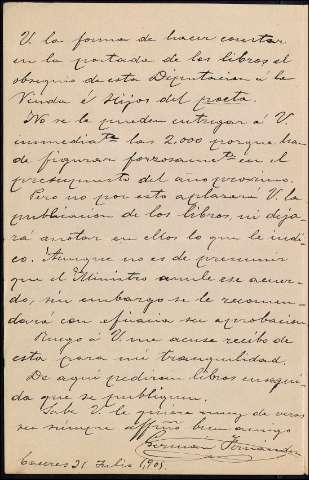 V. la forma de hacer constar
en la portada de los libros el
obsequio de esta Diputacion á la
Viuda é Hijos del poeta.
No se le pueden entregar á V.
inmediatte las 2.000 porque han
de figurar forzosamte en el
presupuesto del año proximo.
Pero no por esto aplazará V. la
publicacion de los libros, ni deja-
rá anotar en ellos lo que le indi-
co. Aunque no es de presumir
que el Ministro anule ese acuer-
do, sin embargo se le recomen-
dará con eficacia su aprobacion
Ruego á V. me acuse recibo de
esta para mi tranquilidad.
De aqui pediran libros ensegui-
da que se publiquen.
Sabe V. le quiere muy de veras
su siempre affmo buen amigo
Germán Fernández
Cáceres 21 Julio 1,905.